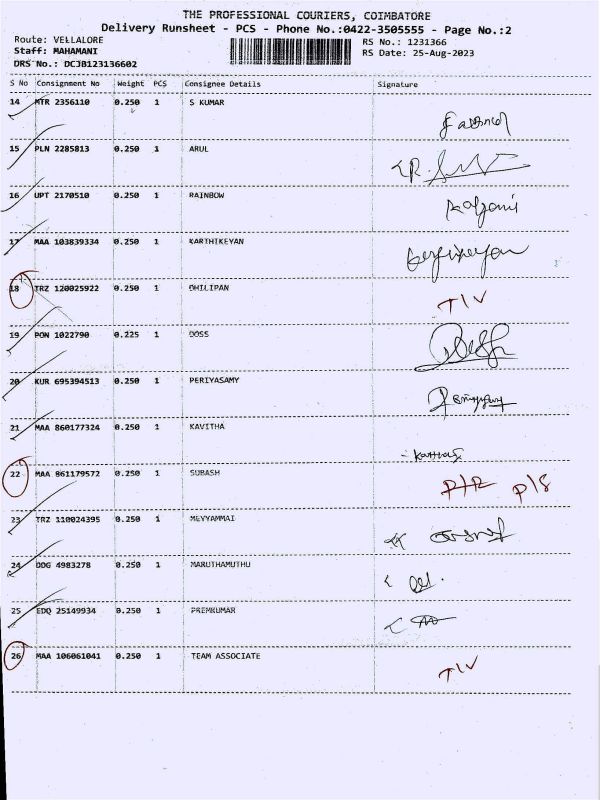 THE PROFESSIONAL COURIERS, COIMBATORE
Delivery Runsheet - PCS - Phone No.:0422-3505555 - Page No.:2
Route: VELLALORE RS No.: 1231366
Staff: MAHAMANI RS Date: 25-Aug-2023
DRS No.: DCJB123136602
S No Consignment No Weight PCS Consignee Details Signature
14 MTR 2356110 0.250 1 S KUMAR
15 PLN 2285813 0.250 1 ARUL
16 UPT 2170510 0.250 1 RAINBOW
17 MAA 103839334 0.250 1 KARTHIKEYAN
18 TRZ 120025922 0.250 1 DHILIPAN TIV
19 PON 1022790 0.225 1 DOSS
20 KUR 695394513 0.250 1 PERIYASAMY
21 MAA 860177324 0.250 1 KAVITHA
22 MAA 861179572 0.250 1 SUBASH
23 TRZ 110024395 0.250 1 MEYYAMMAI
24 DDG 4983278 0.250 1 MARUTHAMUTHU
25 EDQ 25149934 0.250 1 PREMKUMAR
26 MAA 106061041 0.250 1 TEAM ASSOCIATE TIV